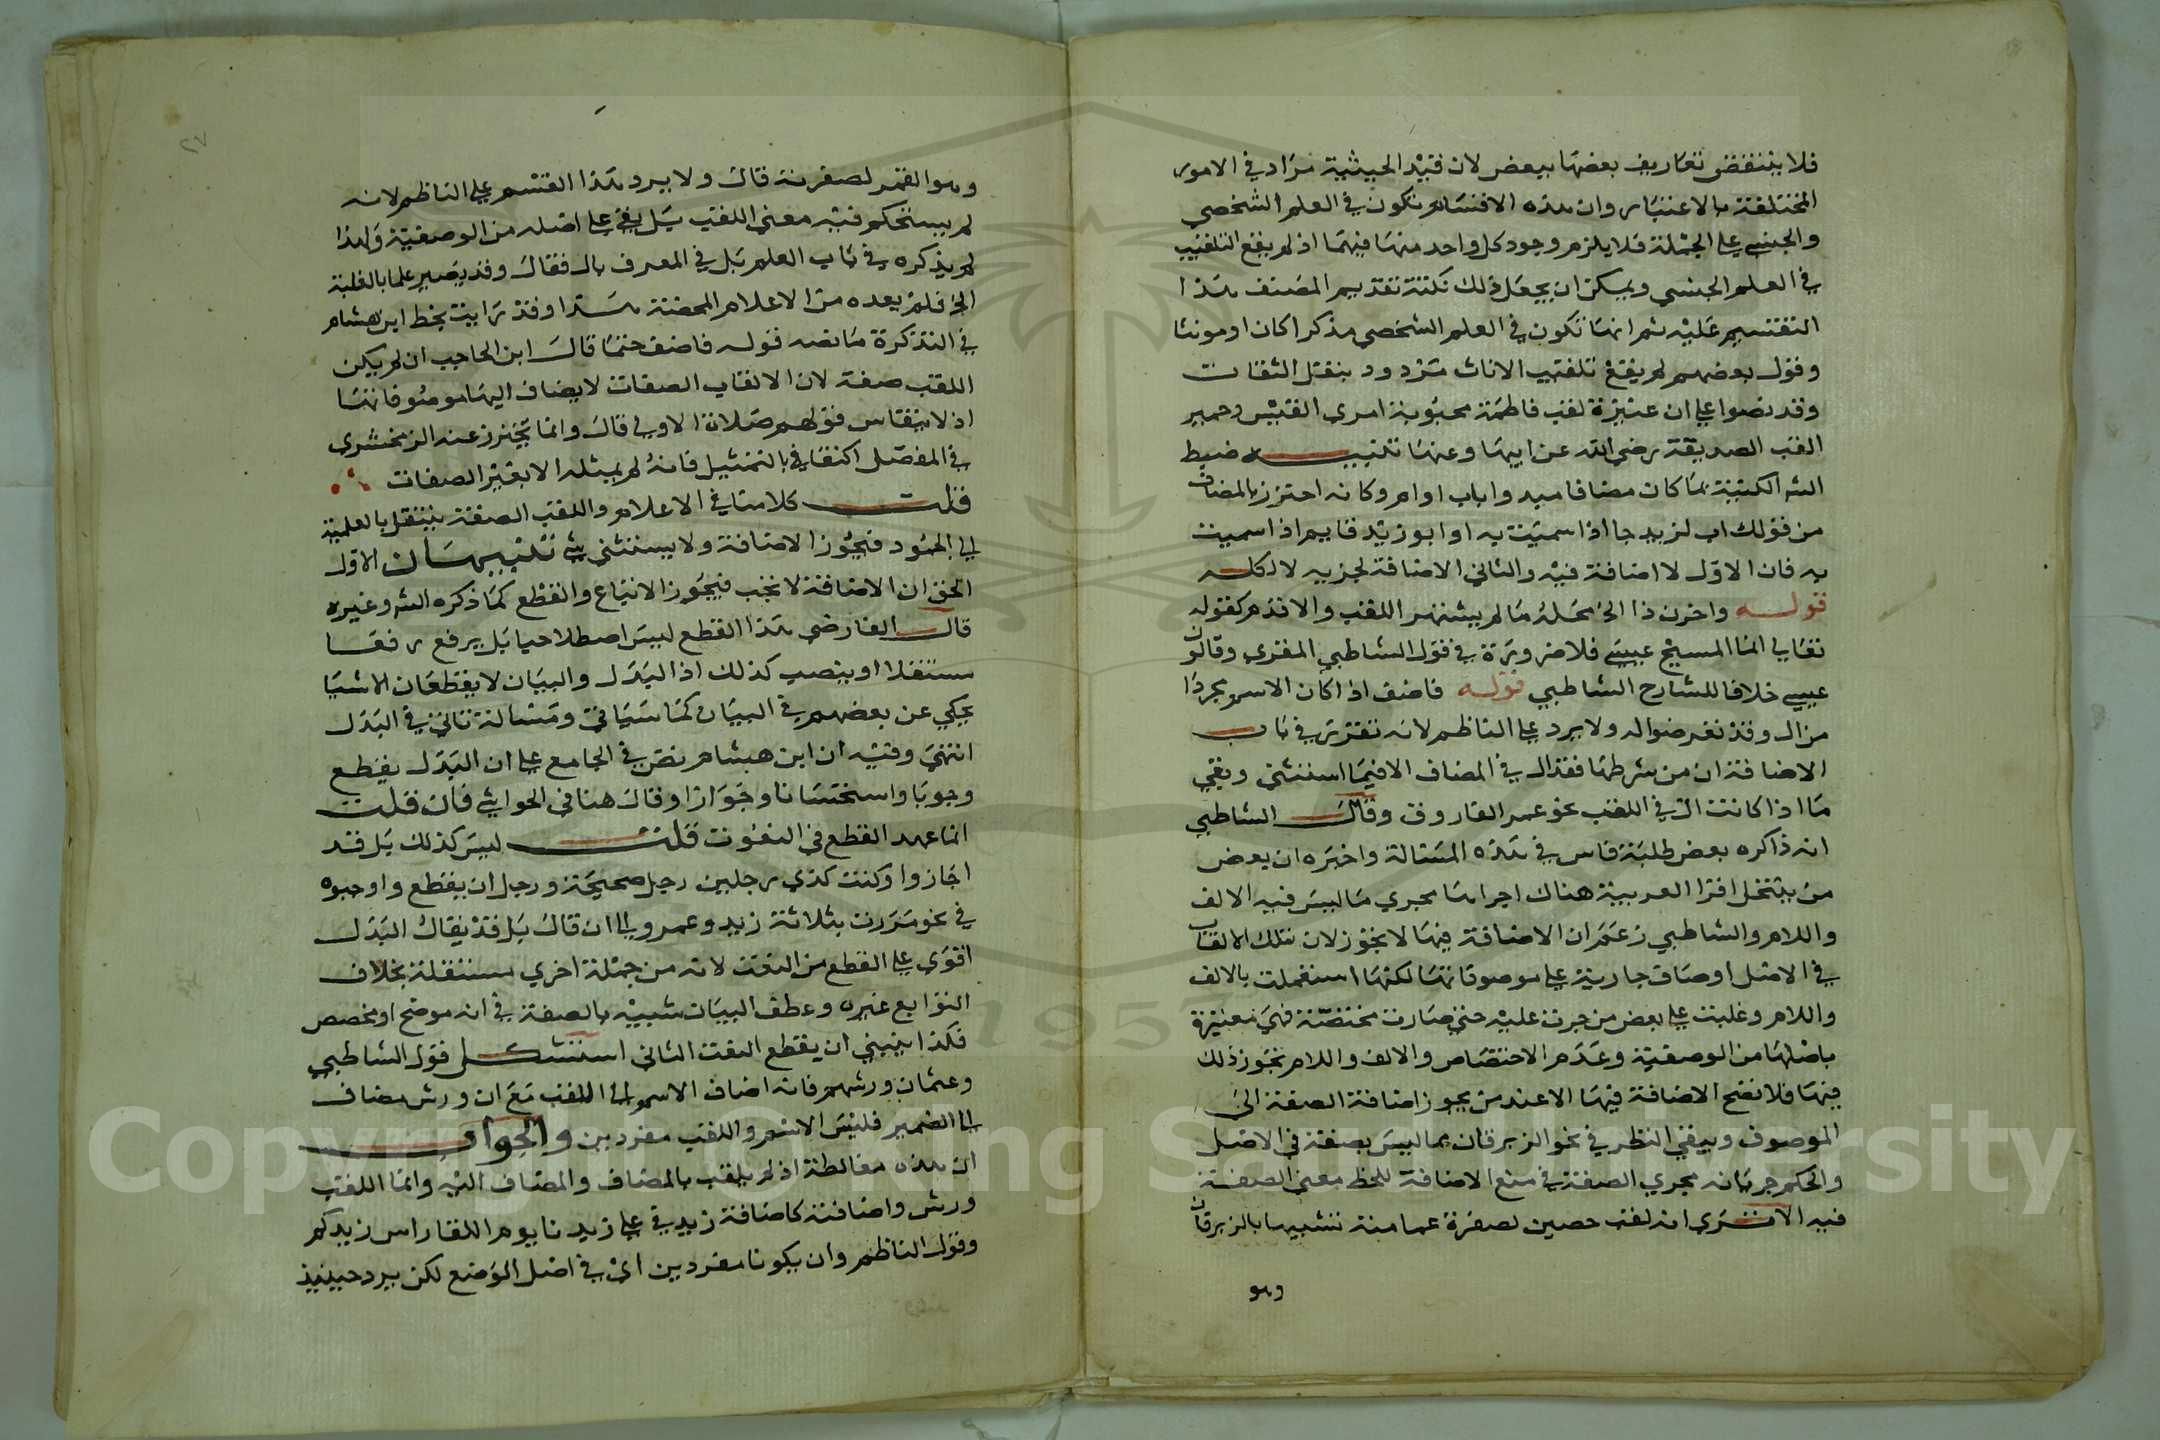 فلا ينتقض تعاريف بعضها ببعض لان قيد الحيثية مراد في الامور
المختلفة بالاعتبار وان هذه الاقسام تكون في العلم الشخصي
والجنسي على الجملة فلا يلزم وجود كل واحد منها فيهما اذ لم يقع التلقيب
في العلم الجنسي ويمكن ان يجعل ذلك نكتة تقديم المصنف هذا
التقسيم عليه ثم انها تكون في العلم الشخصي مذكرا كان او مونثا
وقول بعضهم لم يقع تلقيب الاناث مردود بنقل الثقات
وقد نصوا على ان عنيزة لقب فاطمة محبوبة امري القيس وحمير
القب الصديقة رضي الله عن ابيها وعنها تنبيه ضبط
الشه الكنية بما كان مضافا ميه واباب اوام وكانه احترز بالمضاف
من قولك اب لزيد جا اذا سميت به او ابو زيد قايم اذا سميت
به فان الاول لا اضافة فيه والثاني الاضافة لجزيه لا لكله
قوله واخرن ذا الخ محله ما لم يشتهر اللقب والا قدم كقوله
تعالى انما المسيح عيسى فلا ضرورة في قول الشاطبي المقري وقالون
عيسى خلافا للشارح الشاطبي قوله فاضف اذا كان الاسم مجردا
من ال وقد تعرضوا له ولا يرد على الناظم لانه تقرر في باب
الاضافة ان من شرطها فقد ال في المضاف الا فيما استثني وبقي
ما اذا كانت ال في اللقب نحو عمر الفاروق وقال الشاطبي
انه ذاكره بعض طلبة فاس في هذه المسالة واخبره ان بعض
من ينتحل اقرا العربية هناك اجراها مجرى ما ليس فيه الالف
واللام والشاطبي زعم ان الاضافة فيها لا تجوز لان تلك الالقاب
في الاصل اوصاف جارية على موصوفاتها لكنها استعملت بالالف
واللام وغلبت على بعض من جرت عليه حتى صارت مختصة فهي معتبرة
باصلها من الوصفية وعدم الاختصاص والالف واللام تجوز ذلك
فيها فلا تصح الاضافة فيها الا عند من يجوز اضافة الصفة الى
الموصوف ويبقى النظر في نحو الزبرقان مما ليس بصفة في الاصل
والحكم جريانه مجرى الصفة في منع الاضافة للحظ معنى الصفة
فيه الا ترى انه لقب حصين لصفرة عمامته تشبيها بالزبرقان
وهو
٢٧
وهو القمر لصفرته قال ولا يرد هذا القسم على الناظم لانه
لم يستحكم فيه معنى اللقب بل بقي على اصله من الوصفية ولهذا
لم يذكره في باب العلم بل في المعرف بال فقال وقد يصير علما بالغلبة
الخ فلم يعده من الاعلام المحضة هذا وقد رايت بخط ابن هشام
في التذكرة ما نصه قوله فاضف حتما قال ابن الحاجب ان لم يكن
اللقب صفة لان الالقاب الصفات لا يضاف اليها موصوفاتها
اذ لا ينقاس قولهم صلاة الاولى قال وانما تجوز عند الزمخشري
في المفصل اكتفا في بالتمثيل فانه لم يمثله الا بغير الصفات
قلت كلامنا في الاعلام واللقب الصفة ينتقل بالعلمية
الى الجمود فتجوز الاضافة ولا يستثنى شي تنبيهان الاول
الحق ان الاضافة لا تجب فيجوز الاتباع والقطع كما ذكره الشه وغيره
قال الفارضي هذا القطع ليس اصطلاحيا بل يرفع رفعا
مستقلا او ينصب كذلك اذ البدل والبيان لا يقطعان الا شيا
يحكي عن بعضهم في البيان كما سياتي ومسالة تاتي في البدل
انتهى وفيه ان ابن هشام نص في الجامع على ان البدل يقطع
وجوبا واستحسانا وجوازا وقال هنا في الحواشي فان قلت
انما عهد القطع في النعوت قلت ليس كذلك بل قد
اجازوا وكنت كذي رجلين رجل صحيحة ورجل ان يقطع واوجبوه
في نحو مررت بثلاثة زيد وعمرو الى ان قال بل قد يقال البدل
اقوى على القطع من النعت لانه من جملة اخرى مستقلة بخلاف
التوابع غيره وعطف البيان شبيه بالصفة في انه موضح او مخصص
فكذا ينبغي ان يقطع النعت الثاني استشكل قول الشاطبي
وعثمان ورشهم فانه اضاف الاسم الى اللقب مع ان ورش مضاف
الى الضمير فليس الاسم واللقب مفردين والجواب
ان هذه مغالطة اذ لم يلقب بالمضاف والمضاف اليه وانما اللقب
ورش واضافته كاضافة زيد في على زيدنا يوم اللقا راس زيدكم
وقول الناظم وان يكونا مفردين اي في اصل الوضع لكن يرد حينيذ
Copyright © King Saud University
1957